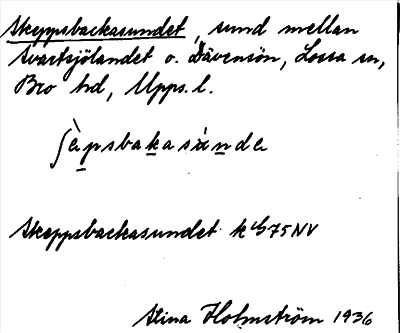 Skeppsbackasundet, sund mellan
Svartsjölandet o. Dävensön, Lossa sn,
Bro hd, Upps. l.
ʃὲpsbakasúndə
Skeppsbackasundet k ⁴/₉75NV
Stina Holmström 1936